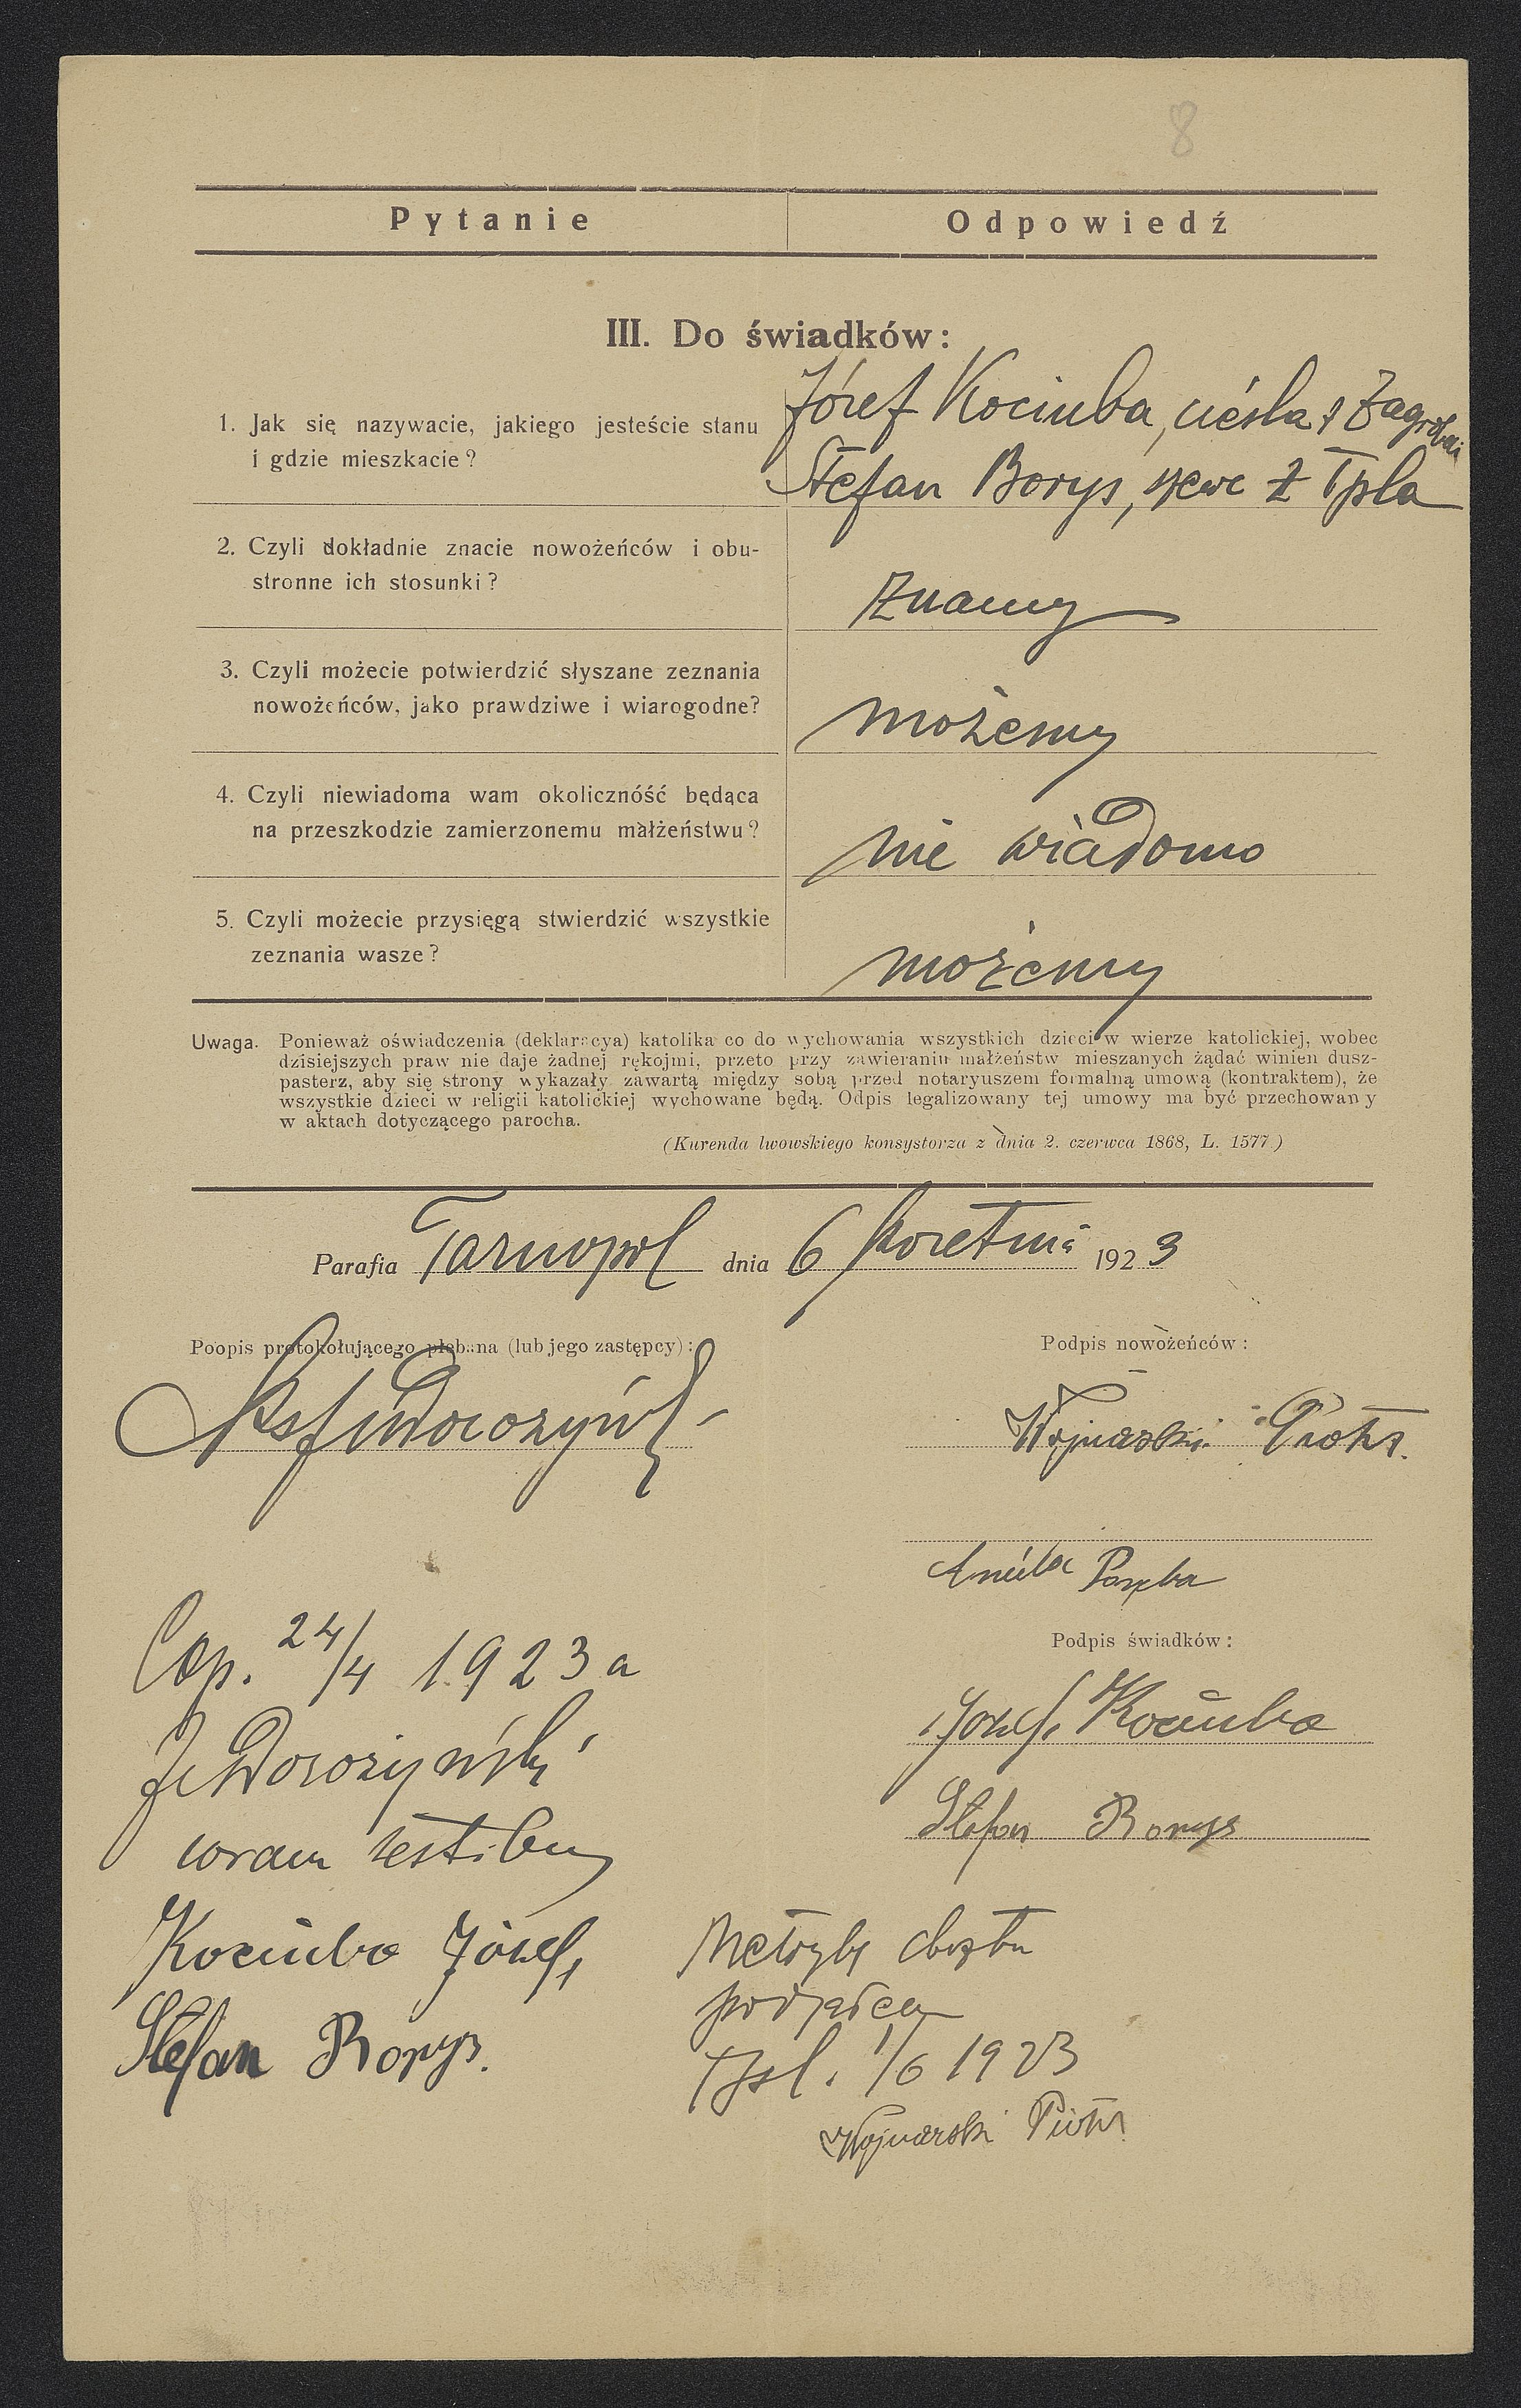 8
Pytanie
Odpowiedź
III. Do świadków:
1. Jak się nazywacie, jakiego jesteście stanu
i gdzie mieszkacie?
Józef Kociuba, cieśla z Zagrobeli
Stefan Borys, szewc z Tpla
2. Czyli dokładnie znacie nowożeńców i obu-
stronne ich stosunki?
Znamy
3. Czyli możecie potwierdzić słyszane zeznania
nowożeńców, jako prawdziwe i wiarogodne?
możemy
4. Czyli niewiadoma wam okolicznóść będąca
na przeszkodzie zamierzonemu małżeństwu?
nie wiadomo
5. Czyli możecie przysięgą stwierdzić wszystkie
zeznania wasze?
możemy
Uwaga. Ponieważ oświadczenia (deklaracya) katolika co do wychowania wszystkich dzieci w wierze katolickiej, wobec
dzisiejszych praw nie daje żadnej rękojmi, przeto przy zawieraniu małżeństw mieszanych żądać winien dusz-
pasterz, aby się strony wykazały zawartą między sobą przed notaryuszem formalną umową (kontraktem), że
wszystkie dzieci w religii katolickiej wychowane będą. Odpis legalizowany tej umowy ma być przechowany
w aktach dotyczącego parocha.
(Kurenda lwowskiego konsystorza z dnia 2. czerwca 1868, L. 1577.)
Parafia Tarnopol dnia 6 kwietnia 1923
Poopis protokołującego plebana (lub jego zastępcy):
Podpis nowożeńców:
Wojnarski Piotr.
Aniela
Podpis świadków:
Józef Kociuba
Stefan Borys
Cop. 24/4 1923 a
coram testibus
Kociuba Józef
Stefan Borys.
Metrykę chrztu
podjąłem
Tpl. 1/6 1923
Wojnarski Piotr